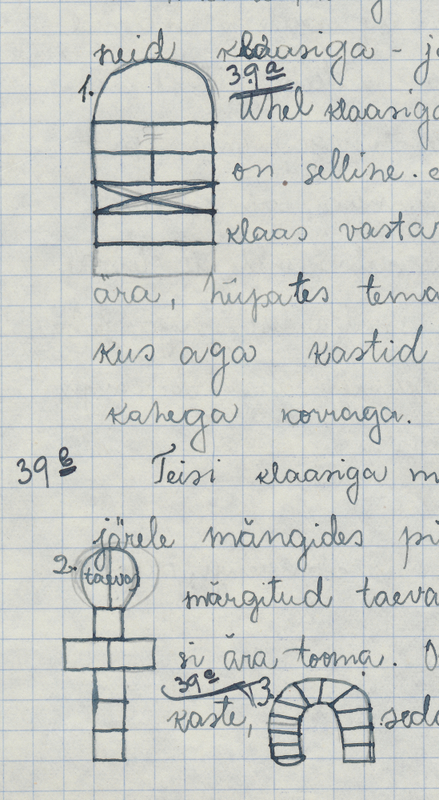 neid klaasiga - j
1. 39a
Ühel klaasiga
on selline.
klaas vasta
ära, hüpates tema
kus aga kastid
kahega korraga.
39 b Teisi klaasiga m
järele mängides pi
2. taevas
märgitud taeva
si ära tooma. O
39 a 3.
kaste, seda